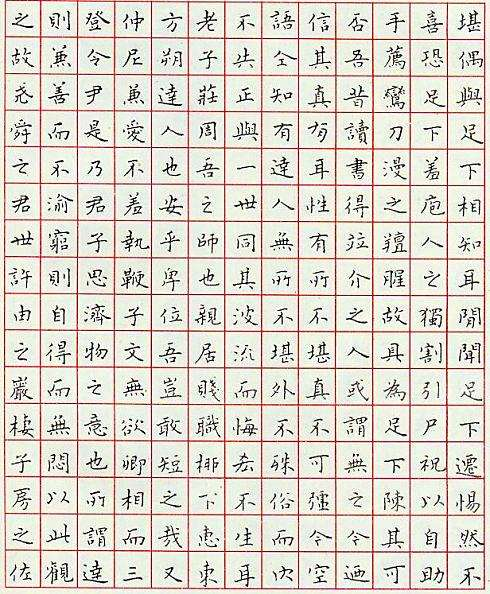 堪偶與足下相知耳閒聞足下遷惕然不
喜恐足下羞庖人之獨割引尸祝以自助
手薦鸞刀漫之羶腥故具為足下陳其可
否吾昔讀書得竝介之人或謂無之今迺
信其真有耳性有所不堪真不可彊今空
語仝知有達人無所不堪外不殊俗而內
不失正與一世同其波流而悔吝不生耳
老子莊周吾之師也親居賤職桺下惠東
方朔達人也安乎卑位吾豈敢短之哉又
仲尼兼愛不羞執鞭子文無欲卿相而三
登令尹是乃君子思濟物之意也所謂達
則兼善而不渝窮則自得而無悶以此觀
之故尧舜之君世許由之巖棲子房之佐